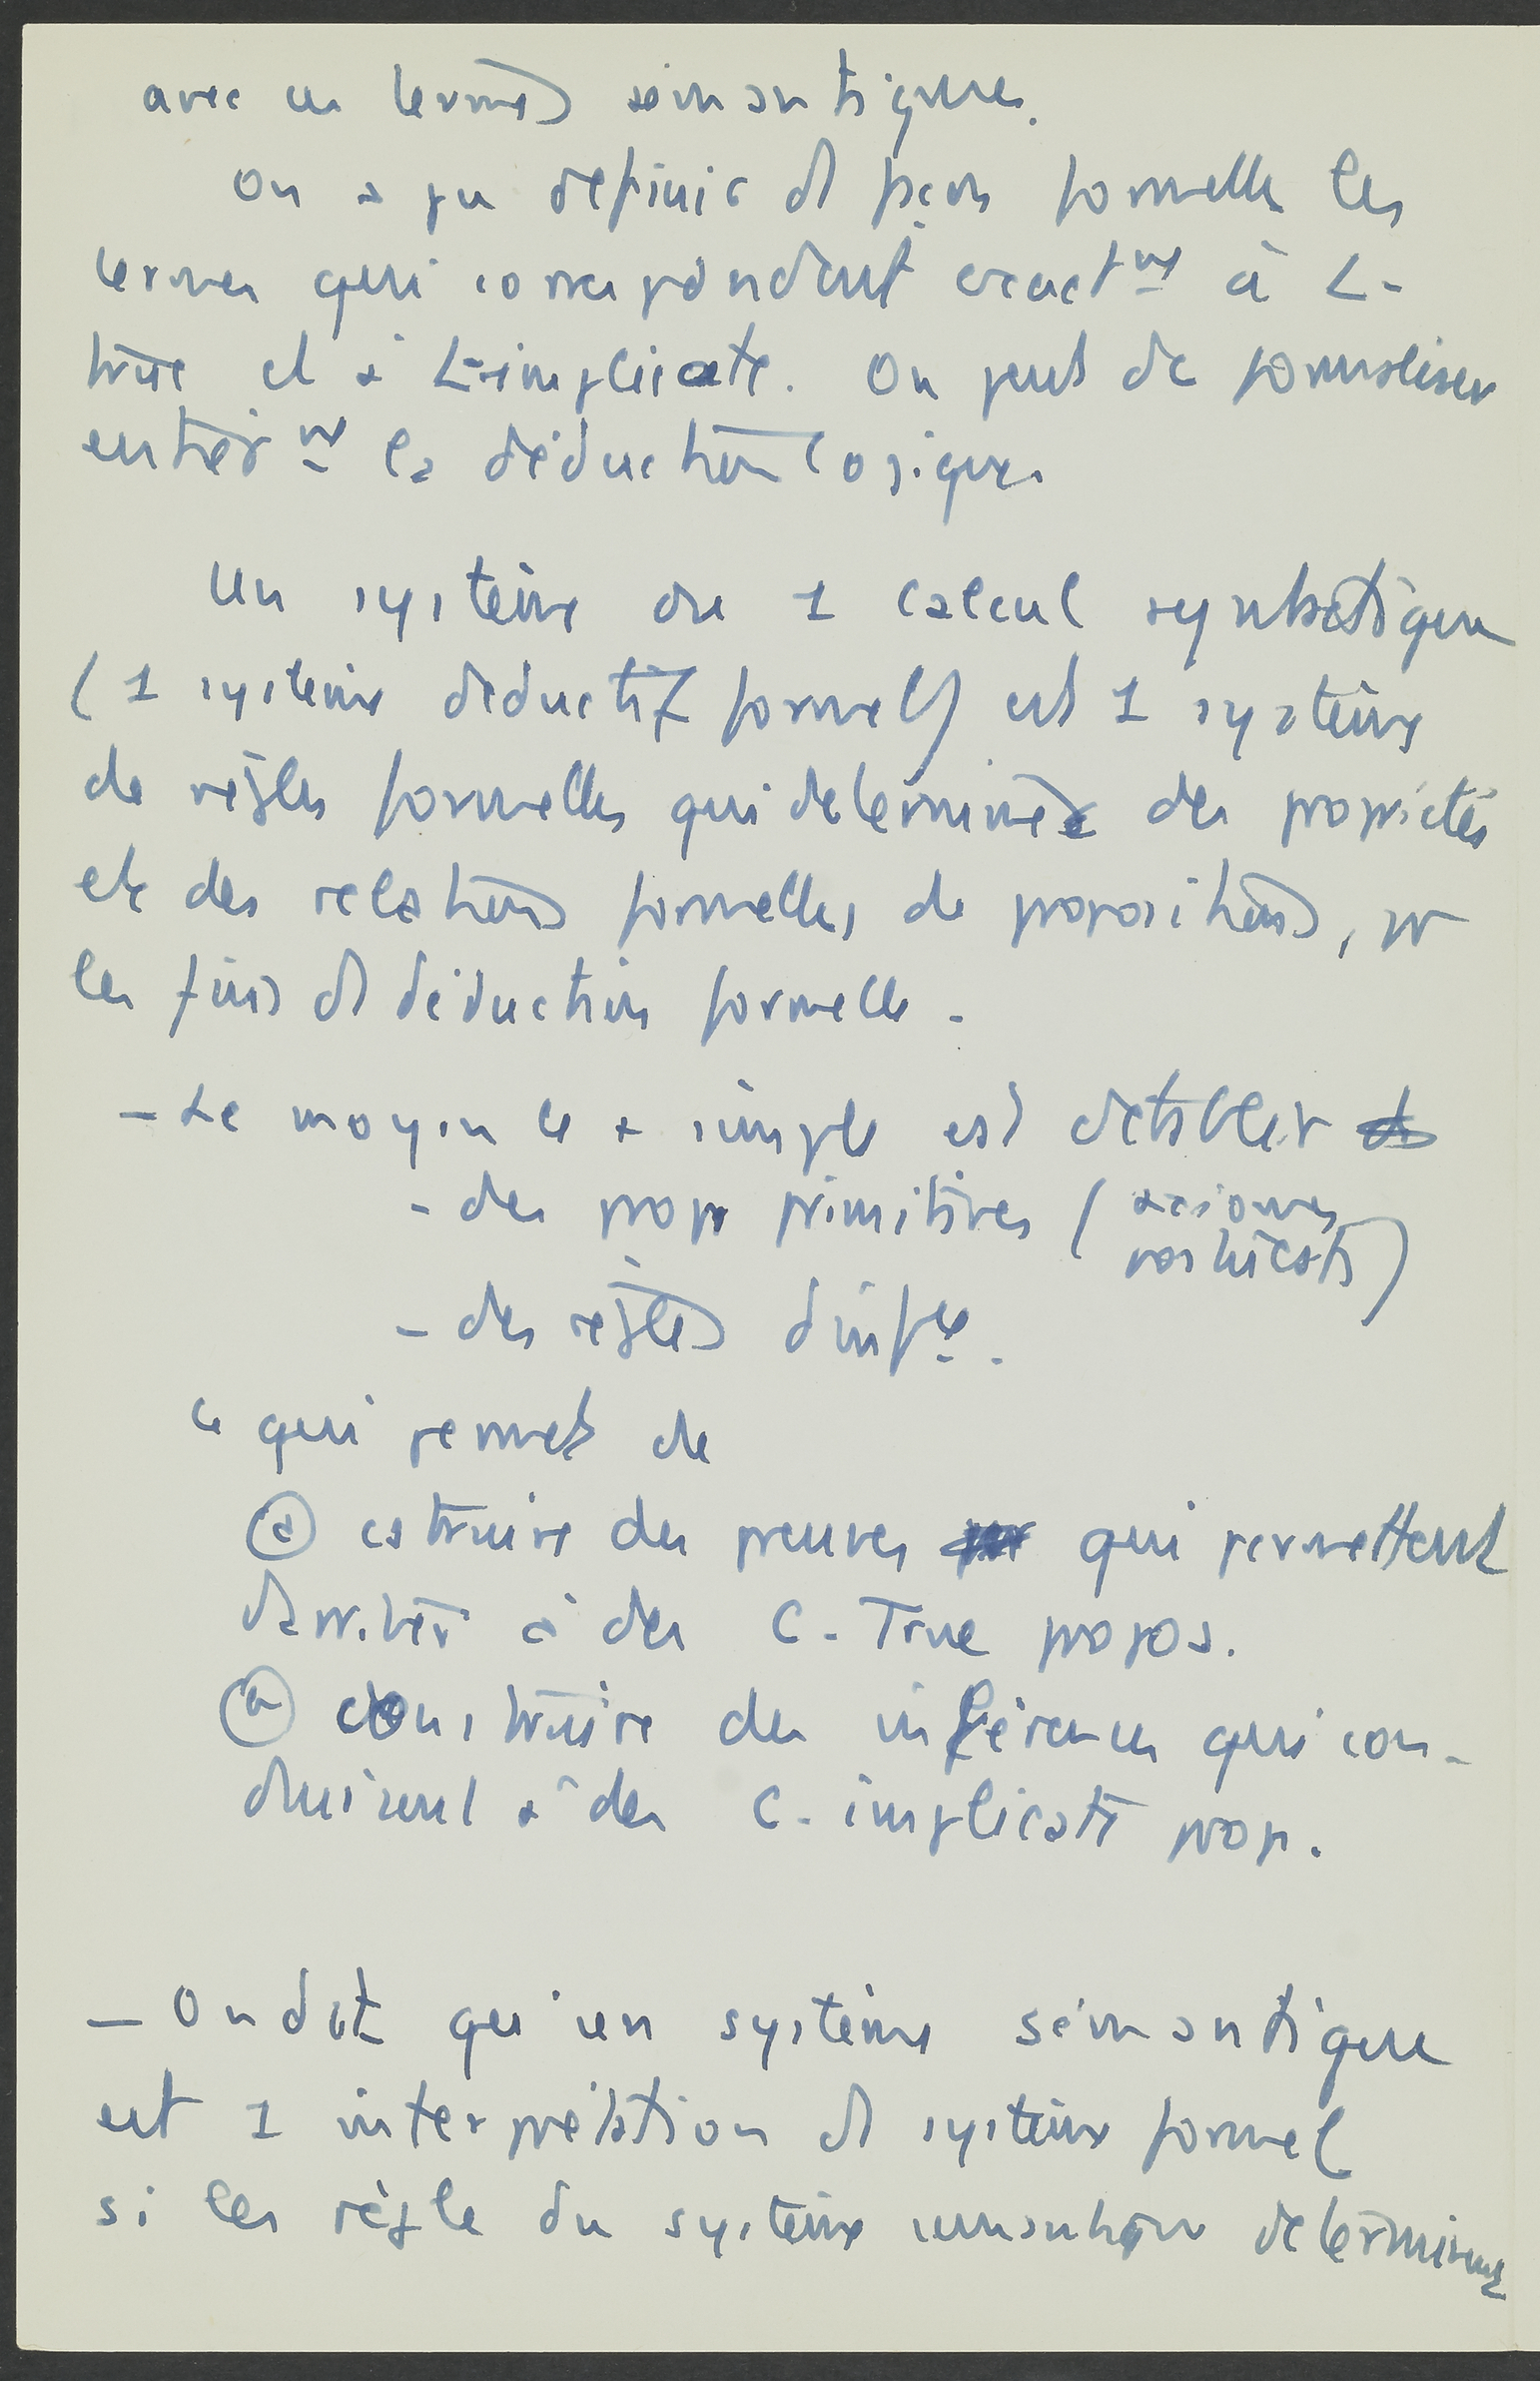 avec ces termes sémantiques.
On a pu définir d façon formelle les
termes qui correspondent exactmt à L-
true et à L-implicate. On peut dc formaliser
entièrmt la déduction logique.
Un système ou 1 calcul syntactique
(1 système déductif formel) est 1 système
de règles formelles qui déterminent des propriétés
et des relations formelles de propositions, pr
les fins d déduction formelle.
- Le moyen le + simple est d'établir
- des prop primitives (axiomes
postulats)
- des règles d'infce.
ce qui permet de
(a) cstruire des preuves qui permettent
d'arriver à des C-True propos.
construire des inférences qui con-
duisent à des C-implicate prop.
- On dit qu'un système sémantique
est 1 interprétation d système formel
si les règle du système sémantique déterminent